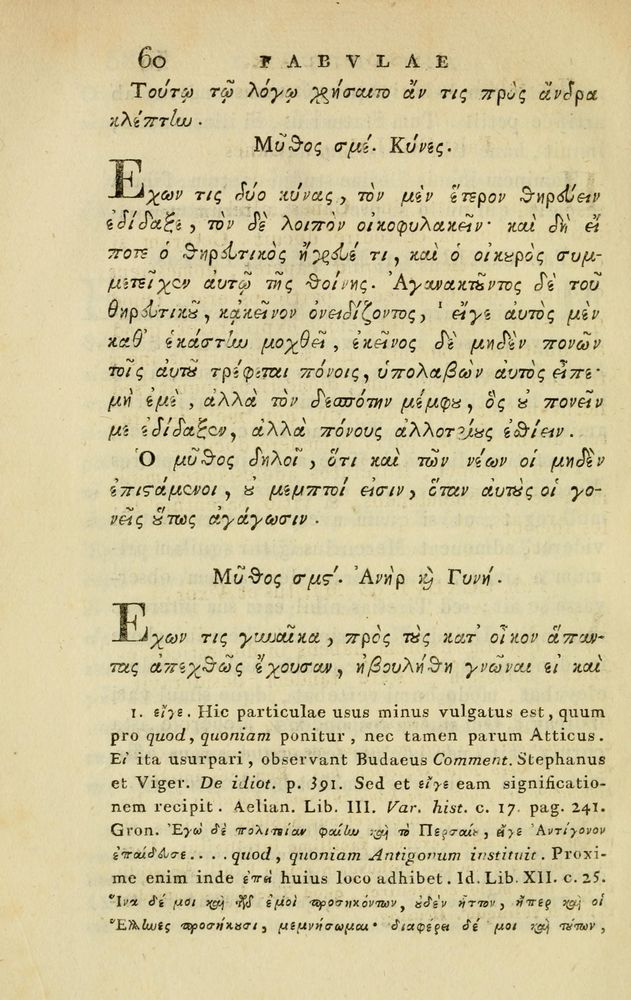 60 FABVLAE
Τούτῳ τῷ λόγῳ χρήσαιτο ἄν τις πρὸς ἄνδρα
κλέπτην.
Μῦθος σμέ. Κύνες.
Εχων τις δύο κύνας, τὸν μὲν ἕτερον θηρεύειν
ἐδίδαξε, τὸν δὲ λοιπὸν οἰκοφυλακεῖν· καὶ δὴ εἴ
ποτε ὁ θηρευτικὸς ἤγρευέ τι, καὶ ὁ οἰκουρὸς συμ-
μετεῖχεν αὐτῷ τῆς θοίνης. Ἀγανακτοῦντος δὲ τοῦ
θηρευτικοῦ, κἀκεῖνον ὀνειδίζοντος, ¹ εἴγε αὐτὸς μὲν
καθ' ἑκάστην μοχθεῖ, ἐκεῖνος δὲ μηδὲν πονῶν
τοῖς αὐτοῦ τρέφεται πόνοις, ὑπολαβὼν αὐτὸς εἶπε·
μὴ ἐμὲ, ἀλλὰ τὸν δεσπότην μέμφου, ὃς οὐ πονεῖν
με ἐδίδαξεν, ἀλλὰ πόνους ἀλλοτρίους ἐσθίειν.
Ὁ μῦθος δηλοῖ, ὅτι καὶ τῶν νέων οἱ μηδὲν
ἐπιστάμενοι, οὐ μεμπτοί εἰσιν, ὅταν αὐτοὺς οἱ γο-
νεῖς οὕτως ἀγάγωσιν.
Μῦθος σμϛ΄. Ἀνὴρ καὶ Γυνή.
Εχων τις γυναῖκα, πρὸς τοὺς κατ' οἶκον ἅπαν-
τας ἀπεχθῶς ἔχουσαν, ἠβουλήθη γνῶναι εἰ καὶ
1. εἴγε. Hic particulae usus minus vulgatus est, quum
pro quod, quoniam ponitur, nec tamen parum Atticus.
Εἰ ita usurpari, observant Budaeus Comment. Stephanus
et Viger. De idiot. p. 391. Sed et εἴγε eam significatio-
nem recipit. Aelian. Lib. III. Var. hist. c. 17. pag. 241.
Gron. Ἐγὼ δὲ πολιτείαν φαίην καὶ τὸ Περσαίου, εἴγε Ἀντίγονον
ἐπαίδευσε.... quod, quoniam Antigonum instituit. Proxi-
me enim inde ἐπεὶ huius loco adhibet. Id. Lib. XII. c. 25.
Ἵνα δέ μοι καὶ τῶν ἐμοὶ προσηκόντων, οὐδὲν ἧττον, ἤπερ καὶ οἱ
Ἕλληνες προσήκουσι, μεμνήσωμαι· διαφέρει δέ μοι καὶ τούτων,